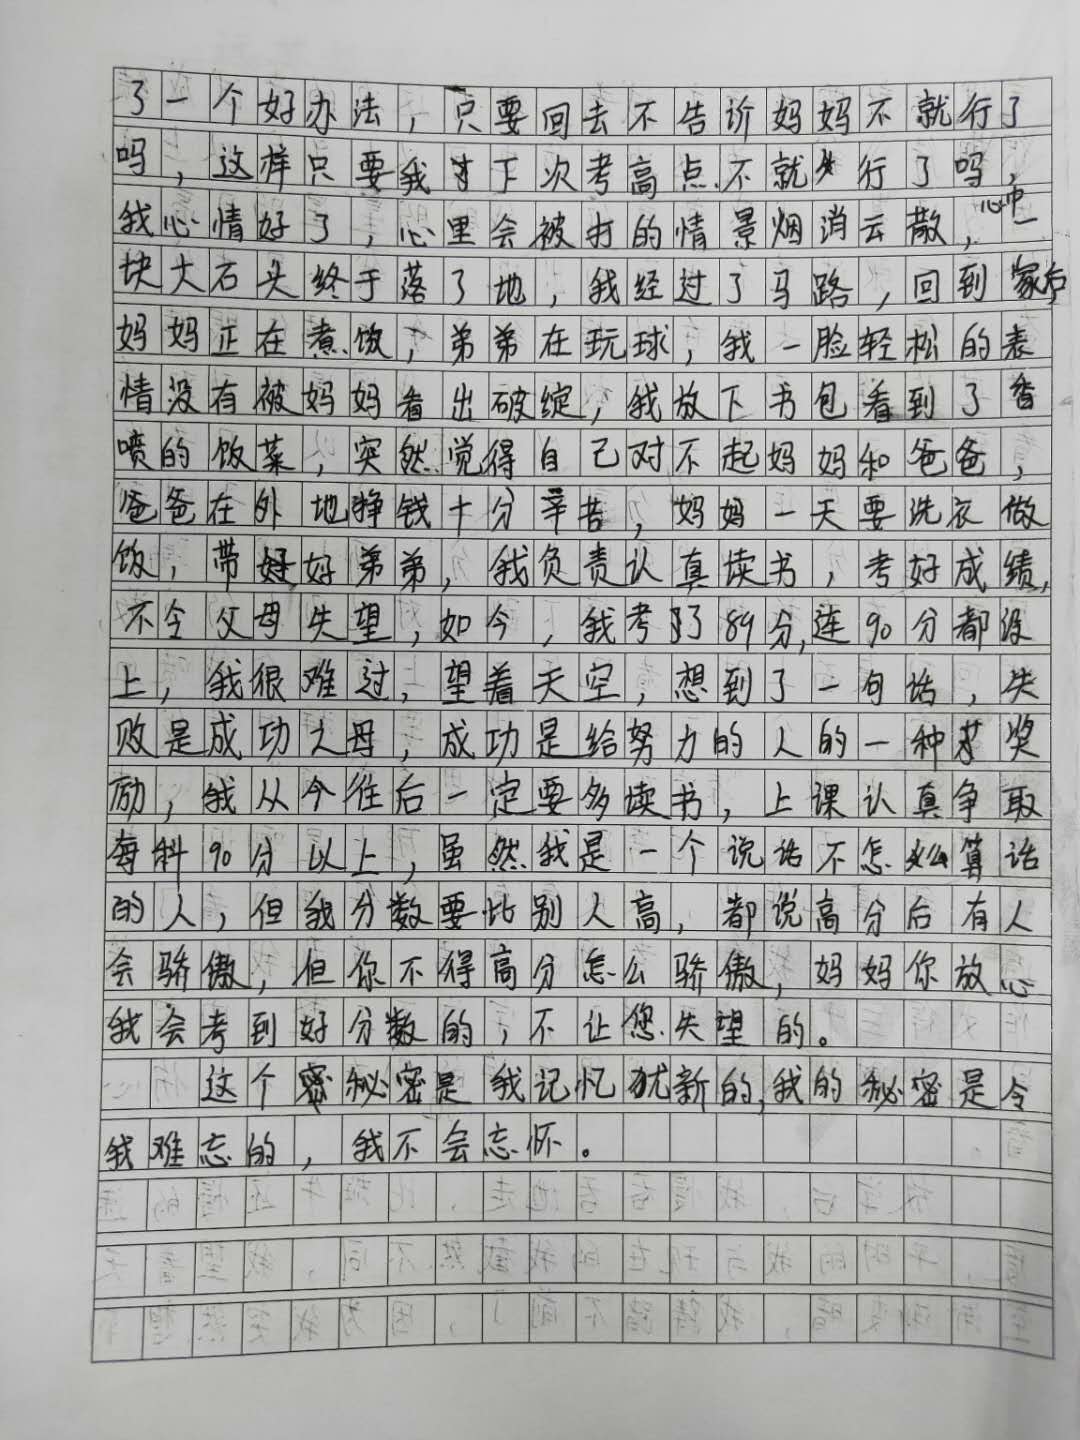 了一个好办法，只要回去不告诉妈妈不就行了
吗，这样只要我下次考高点不就行了吗，
我心情好了，心里会被打的情景烟消云散，心中一
块大石头终于落了地，我经过了马路，回到家后
妈妈正在煮饭，弟弟在玩球，我一脸轻松的表
情没有被妈妈看出破绽，我放下书包看到了香
喷的饭菜，突然觉得自己对不起妈妈和爸爸，
爸爸在外地挣钱十分辛苦，妈妈一天要洗衣做
饭，带好好弟弟，我负责认真读书，考好成绩，
不令父母失望，如今，我考了89分，连90分都没
上，我很难过，望着天空，想到了一句话，失
败是成功之母，成功是给努力的人的一种奖
励，我从今往后一定要多读书，上课认真争取
每科90分以上，虽然我是一个说话不怎么算话
的人，但我分数要比别人高，都说高分后有人
会骄傲，但你不得高分怎么骄傲，妈妈你放心
我会考到好分数的，不让您失望的。
这个密秘密是我记忆犹新的，我的秘密是令
我难忘的，我不会忘怀。